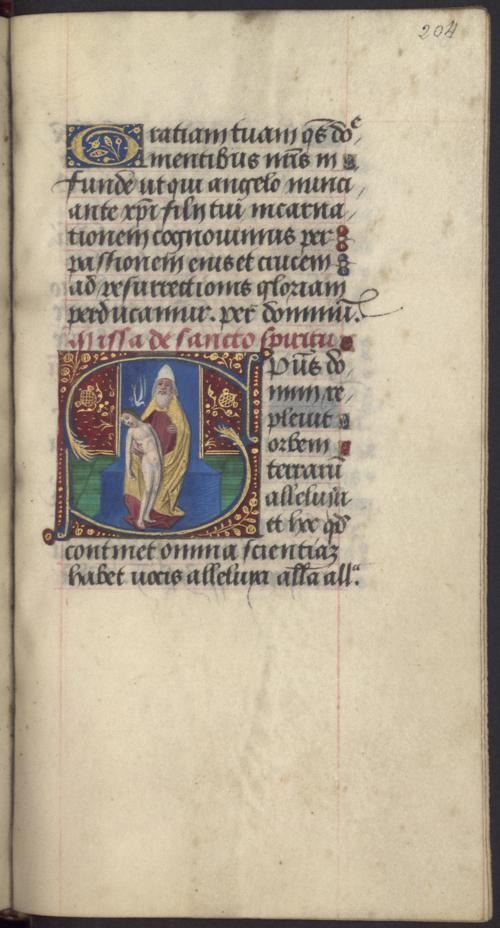 204
Gratiam tuam q̄s dōe
mentibus nr̄is in
funde ut qui angelo nunci
ante xp̄i filij tui incarna
tionem cognouimus per
passionem eius et crucem
ad resurrectionis gloriam
perducamur. per dominū.
Missa de sancto spiritu
Spūs do
mini re
pleuit
orbem
terrarū
alleluya
et hoc qd̄
continet omnia scientiaz
habet uocis alleluya all̄a all.a